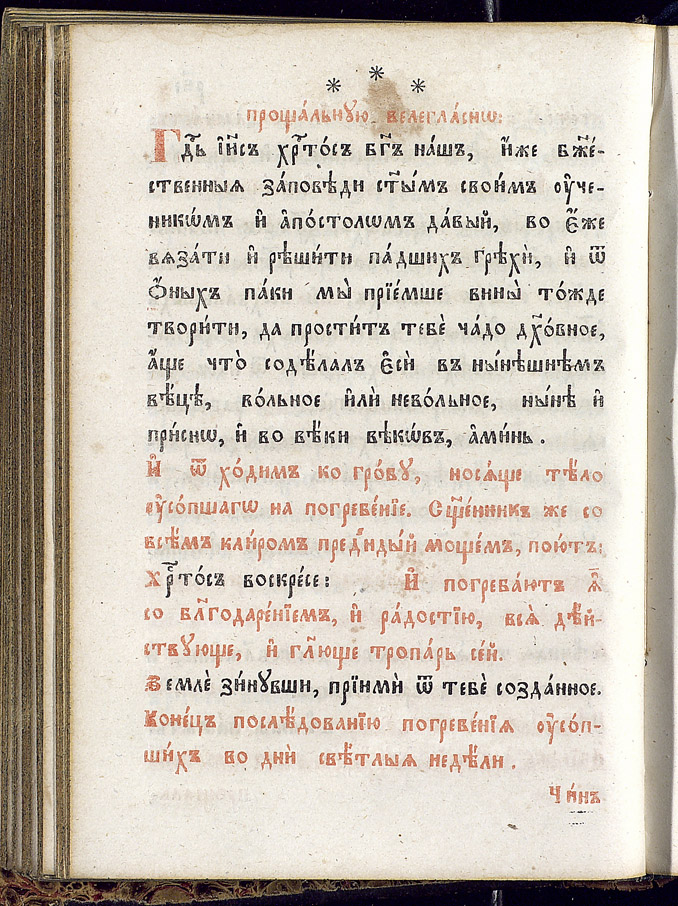 * * *
проща́льную велегла́снѡ:
Гдⷭ҇ь і҆и҃съ хрⷭ҇то́съ бг҃ъ на́шъ, и҆́же бжⷭ҇е́-
ственныѧ за́повѣди ст҃ы̑мъ свои̑мъ ᲂу҆че-
никѡ́мъ и҆ а҆по́столѡмъ да́вый, во є҆́же
вѧза́ти и҆ рѣши́ти па́дшихъ грѣхѝ, и҆ ѿ
ѻ҆́ныхъ па́ки мы̀ прїе́мше вины̀ то́жде
твори́ти, да прости́тъ тебѐ ча́до дх҃о́вное,
а҆́ще что̀ содѣ́лалъ є҆сѝ въ ны́нѣшнѣмъ
вѣ́цѣ, во́льное и҆лѝ нево́льное, ны́нѣ и҆
при́снѡ, и҆ во вѣ́ки вѣкѡ́въ, а҆ми́нь.
И҆ ѿхо́димъ ко гро́бу, носѧ́ще тѣ́ло
ᲂу҆со́пшагѡ на погребе́нїе. Сщ҃е́нникъ же со
всѣ́мъ кли́ромъ пред̾иды́й моще́мъ, пою́тъ:
Хрⷭ҇то́съ воскре́се: И҆ погреба́ютъ ѧ҆̀
со блг҃одаре́нїемъ, и҆ ра́достїю, всѧ̑ дѣ́й-
ствующе, и҆ гл҃юще тропа́рь се́й.
Землѐ зи́нувши, прїимѝ ѿ тебѐ созда́нное.
Коне́цъ послѣ́дованїю погребе́нїѧ ᲂу҆со́п-
ши́хъ во днѝ свѣ́тлыѧ недѣ́ли.
Чи́нъ